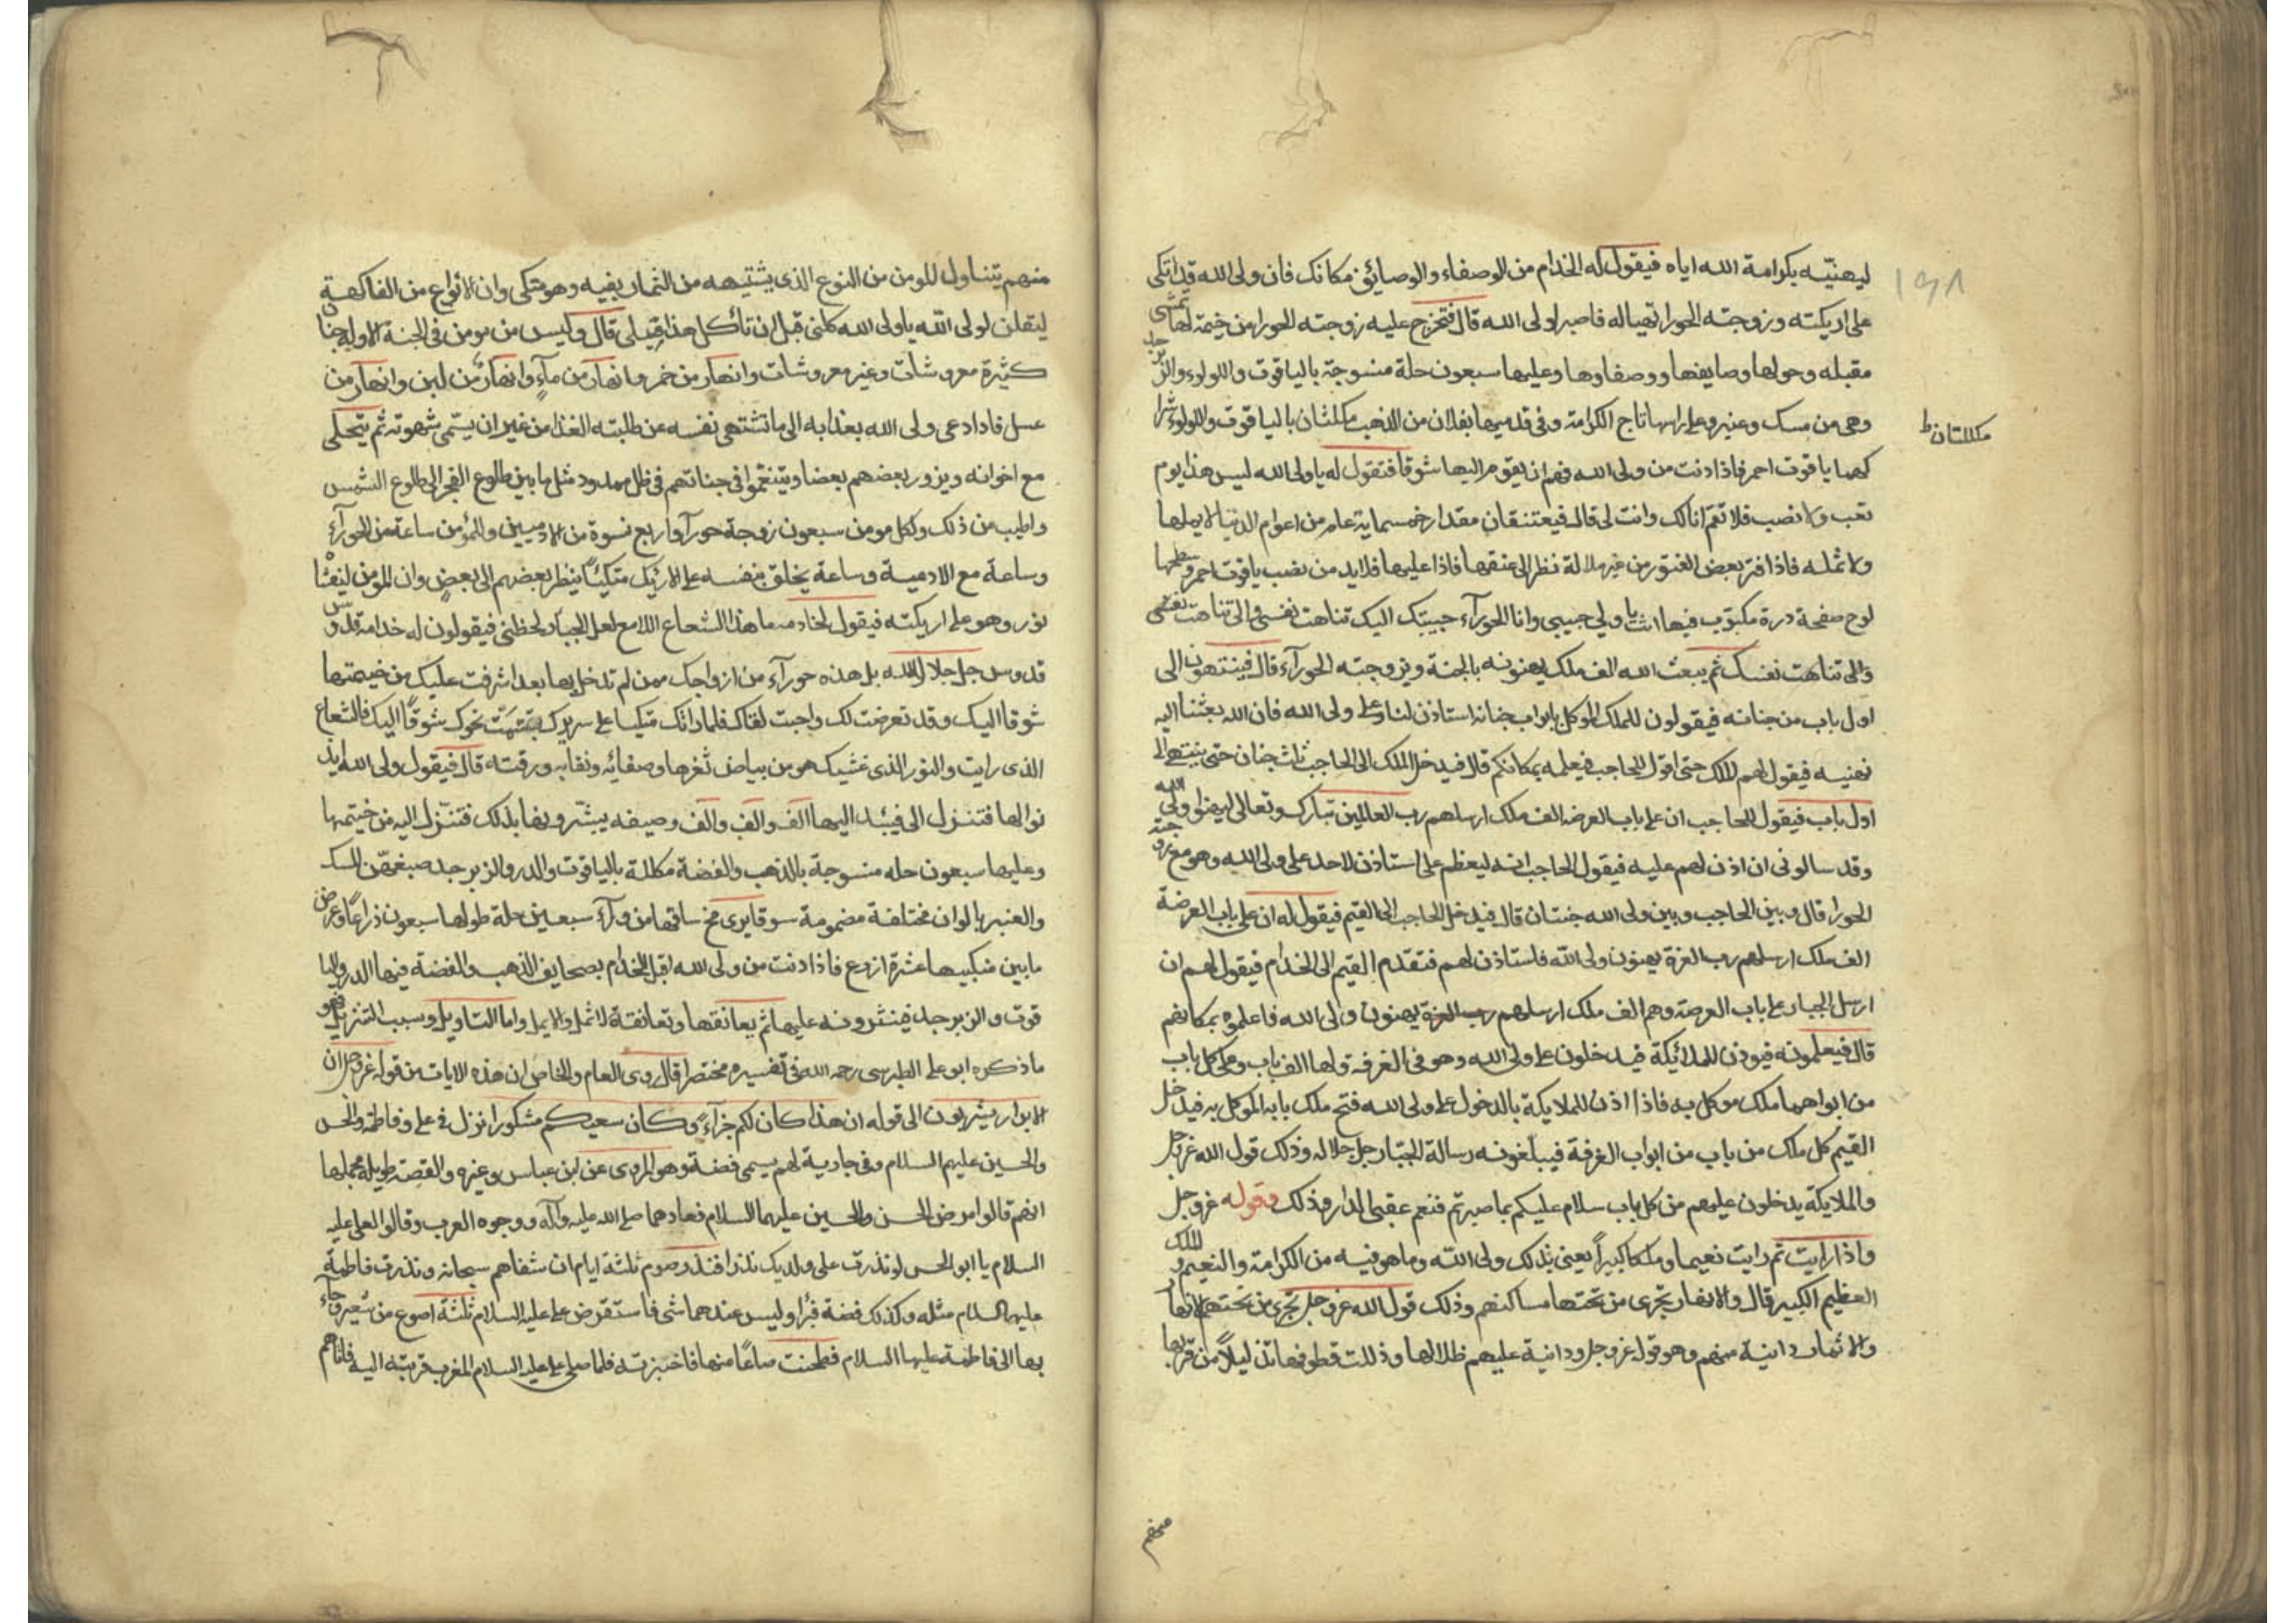 ليهنيّه بكرامة الله اياه فيقول له الخدام من الوصفاء والوصائف مكانك فان ولى الله قد اتكى
على اريكته وزوجته الحورا تهيا له فاصبر لولى الله قال فتخرج عليه زوجته الحورا من خيمة لها تمشى
مقبله وحولها وصايفها ووصفاوها وعليها سبعون حلة منسوجة بالياقوت واللولوء والزبرجد
وهى من مسك وعنبر وعلى راسها تاج الكرامة وفى قدميها نعلان من الذهب مكلثان بالياقوت واللولوء شرا
مكللتان ط
كهما ياقوت احمر فاذا دنت من ولى الله فهم ان يقوم اليها شوقا فتقول له يا ولى الله ليس هذا يوم
تعب ولا نصب فلا تقم انا لك وانت لى قال فيعتنقان مقدار خمسماية عام من اعوام الدنيا لا يملها
ولا تمله فاذا فتر بعض الفتور من غير ملالة نظر الى عنقها فاذا عليها قلايد من نصب ياقوت احمر وسطها
لوح صفحة درة مكتوب فيها انت يا ولي حبيبى وانا الحورآء حبيبتك اليك تناهت نفسى والى تناهت نفسى
والى تناهت نفسك ثم يبعث الله الف ملك يهنونه بالجنة ويزوجته الحورآء قال فينتهون الى
اول باب من جنانه فيقولون للملك الموكل بابواب جنانه استاذن لنا على ولى الله فان الله بعثنا اليه
نهنيه فيقول لهم الملك حتى اقول للحاجب فيعلمه بمكانكم قال فيدخل الملك الى الحاجب ثلث جنان حتى ينتهى الى
اول باب فيقول للحاجب ان على باب العرصه الف ملك ارسلهم رب العالمين تبارك وتعالى ليهنوا ولى الله
وقد سالونى ان اذن لهم عليه فيقول الحاجب انه ليعظم على ان استاذن لاحد على ولى الله وهو مع زوجته
الحورا قال وبين الحاجب وبين ولى الله جنتان قال فيدخل الحاجب الى القيم فيقول له ان على باب العرصة
الف ملك ارسلهم رب العزة يهنون ولى الله فاستاذن لهم فتقدم القيم الى الخدام فيقول لهم ان
ارسل الجبار على باب العرصة وهم الف ملك ارسلهم رب العزة يهنون ولى الله فاعلموه بمكانهم
قال فيعلمونه فيوذن للملائيكة فيدخلون على ولى الله وهو فى الغرفة ولها الف باب وعلى كل باب
من ابوابها ملك موكل به فاذا اذن للملايكة بالدخول على ولى الله فتح ملك بابه الموكل به فيدخل
القيم كل ملك من باب من ابواب الغرفة فيبلغونه رسالة الجبّار جل جلاله وذلك قول الله عز وجل
والملايكة يدخلون عليهم من كل باب سلام عليكم بما صبرتم فنعم عقبى الدار وذلك وقوله عز وجل
واذا رايت ثم رايت نعيما وملكا كبيراً يعنى بذلك ولى الله وما هو فيه من الكرامة والنعيم والملك
العظيم الكبير قال والانهار تجرى من تحتها مساكنهم وذلك قول الله عز وجل تجرى من تحتهم الانهار
والاثمار دانية منهم وهو قوله عز وجل ودانية عليهم ظلالها وذللت قطوفها تذليلاً من قربها
منهم
منهم يتناول المومن من النوع الذى يشتيهه من الثمار بفيه وهو متكى وان الانواع من الفاكهة
ليقلن لولى الله يا ولى الله كلنى قبل ان تأكل هذا قبلى قال وليس من مومن فى الجنة الا وله جنان
كثيرة معروشات وغير معروشات وانهار من خمر وانهار من مآءٍ وانهار من لبن وانهار من
عسل فاذا دعى ولى الله بغذائه الى ما تشتهى نفسه عن طلبته الغذا من غير ان يسمّى شهوته ثم يتحلى
مع اخوانه ويزور بعضهم بعضا ويتنعّموا فى جناتهم فى ظل ممدود مثل ما بين طلوع الفجر الى طلوع الشمس
واطيب من ذلك ولكل مومن سبعون زوجة حورآ واربع نسوة من الادميين والمؤمن ساعة من الحورآء
وساعة مع الادمية وساعة يخلو بنفسه على الارئيك متكيئاً ينظر بعضهم الى بعض وان المومن ليغشا
نور وهو على اريكته فيقول لخادمه ما هذا الشعاع اللامع لعل الجبار لحظنى فيقولون له خدامه قدوس
قدوس جل جلال الله بل هذه حورآء من ازواجك ممن لم تدخل بها بعد اشرفت عليك من خيمتها
شوقا اليك وقد تعرضت لك واحبت لقاك فلما راتك متكيا على سريرك تبسّمت نحوك شوقاً اليك فالشعاع
الذى رايت والنور الذى غشيك هو من بياض ثغرها وصفائه ونقائه ورقته قال فيقول ولى الله ايذ
نوا لها فتنزل الى فيبتدر اليها الف والف والف وصيفه يبشّرونها بذلك فتنزل اليه من خيمتها
وعليها سبعون حله منسوجة بالذهب والفضة مكللة بالياقوت والدر والزبرجد صبغهّن المسك
والعنبر بالوان مختلفة مضمومة سوقا يرى مخ ساقها من ورآء سبعين حلة طولها سبعون ذراعاً وعرض
ما بين منكبيها عشرة ازرع فاذا دنت من ولى الله اقبل الخدام بصحايف الذهب والفضة فيها الدر واليا
قوت والزبرجد فينثرونه عليها ثم يعانقها وتعانقة لا تمل ولا يمل واما التاويل وسبب التنزيل فهو
ما ذكره ابو على الطبرسى رحمه الله فى تفسيره مختصرا قال روى العام والخاص ان هذه الايات من قوله عز وجل ان
الابوار يشربون الى قوله ان هذا كان لكم جزآءً وكان سعيكم مشكورا نزل فى على وفاطمة والحسن
والحسين عليهم السلام وفى جارية لهم يسمى فضة وهو المروى عن ابن عباس وغيره والقصة طويله مجملها
انهم قالوا مرض الحسن والحسين عليهما السلام فعادهما صلى الله عليه وآله ووجوه العرب وقالوا لعلى عليه
السلام يا ابو الحسن لو نذرت على ولديك نذرا فنذر صوم ثلثة ايام ان شفاهم سبحانه ونذرت فاطمة
عليها السلام مثله وكذلك فضة فبرا وليس عندهما شى فاستقرض على عليه السلام ثلثة اصوع من شعير وجاء
بها الى فاطمة عليها السلام فطحنت صاعًا منها فاخبزته فلما صلى على عليه السلام المغرب قربته اليه فاتاهم